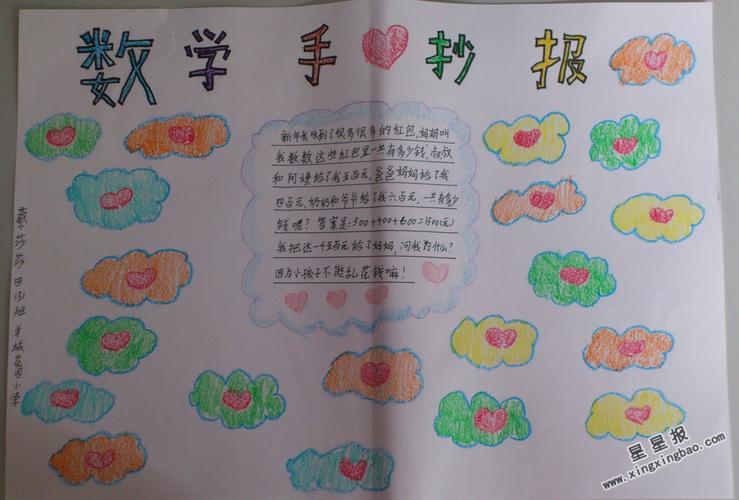 数学手抄报
新年我收到了很多很多的红包,妈妈叫
我数数这些红包里一共有多少钱,叔叔
和阿姨给了我五百元,爸爸妈妈给了我
四百元,奶奶和爷爷给了我六百元,一共有多少
钱呢?答案是:500+400+600=1500(元)
我把这一千五百元给了妈妈,问我为什么?
因为小孩子不能乱花钱嘛!
蔡莎莎 四(3)班 羊城花园小学
星星报
www.xingxingbao.com